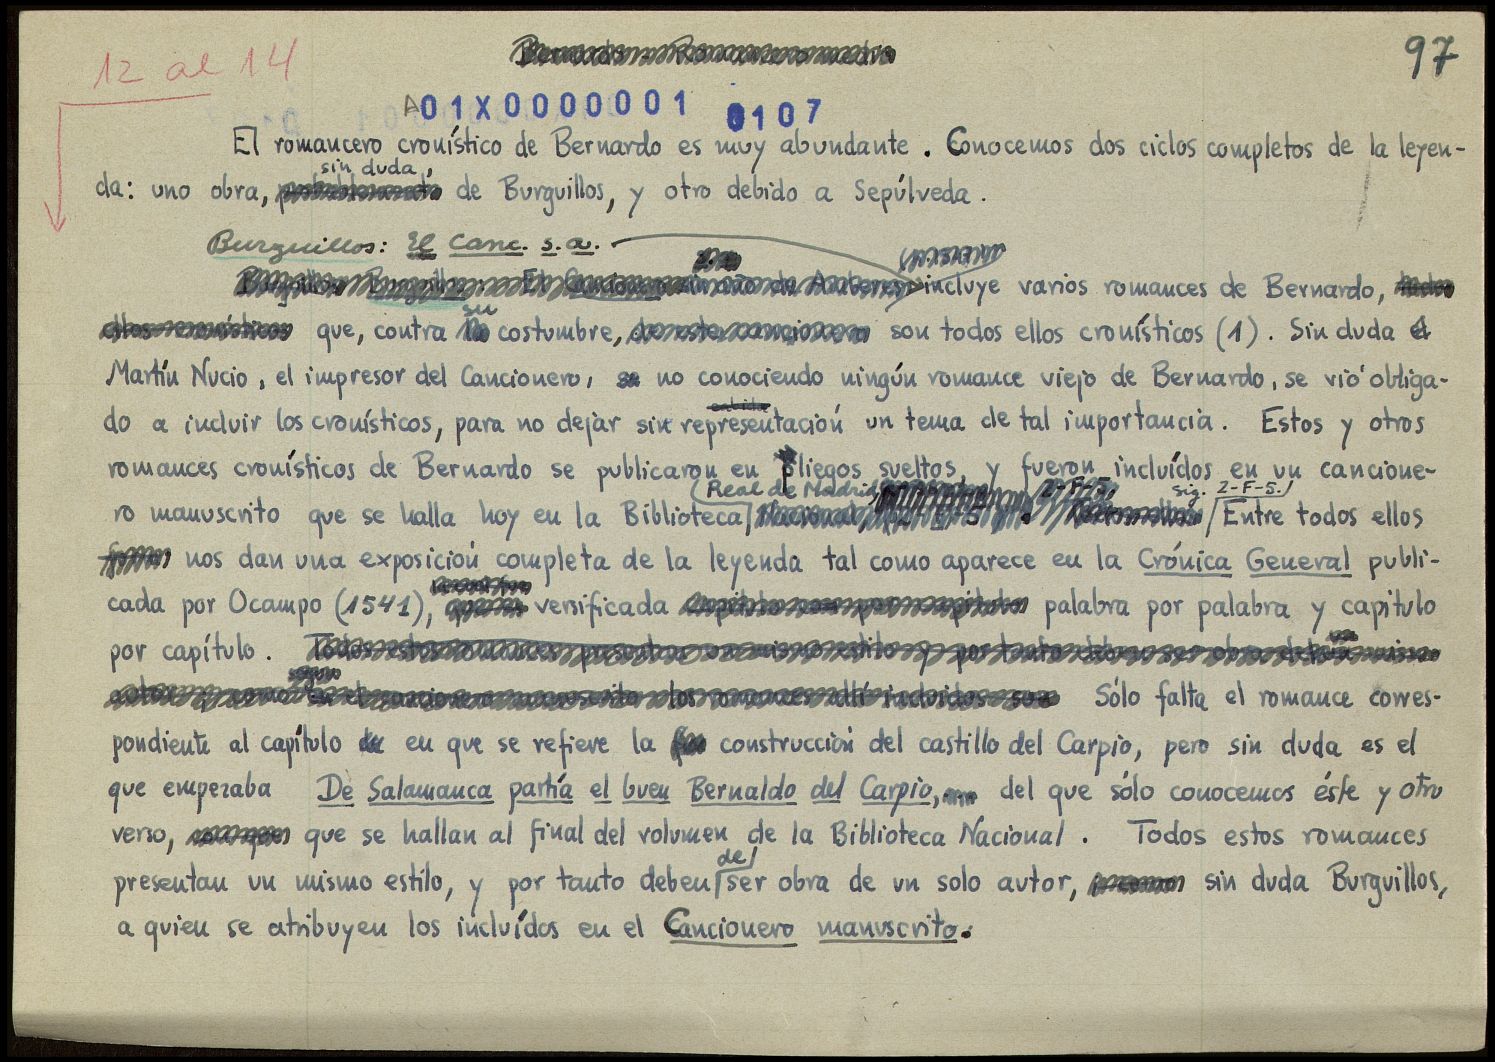 12 al 14
97
A01X0000001 0107
El romancero cronístico de Bernardo es muy abundante. Conocemos dos ciclos completos de la leyen-
sin duda,
da: uno obra, de Burguillos, y otro debido a Sepúlveda.
Burguillos: El Canc. s.a.
incluye varios romances de Bernardo,
su
que, contra costumbre, son todos ellos cronísticos (1). Sin duda
Martín Nucio, el impresor del Cancionero, no conociendo ningún romance viejo de Bernardo, se vió obliga-
do a incluir los cronísticos, para no dejar sin representación un tema de tal importancia. Estos y otros
romances cronísticos de Bernardo se publicaron en pliegos sueltos, y fueron incluídos en un cancione-
Real de Madrid, 2-F-5, sig. 2-F-5.
ro manuscrito que se halla hoy en la Biblioteca Entre todos ellos
nos dan una exposición completa de la leyenda tal como aparece en la Crónica General publi-
cada por Ocampo (1541), versificada palabra por palabra y capitulo
por capítulo.
Sólo falta el romance corres-
pondiente al capítulo en que se refiere la construcción del castillo del Carpio, pero sin duda es el
que empezaba De Salamanca partía el buen Bernaldo del Carpio, del que sólo conocemos éste y otro
verso, que se hallan al final del volumen de la Biblioteca Nacional. Todos estos romances
de
presentan un mismo estilo, y por tanto deben ser obra de un solo autor, sin duda Burguillos,
a quien se atribuyen los incluídos en el Cancionero manuscrito.